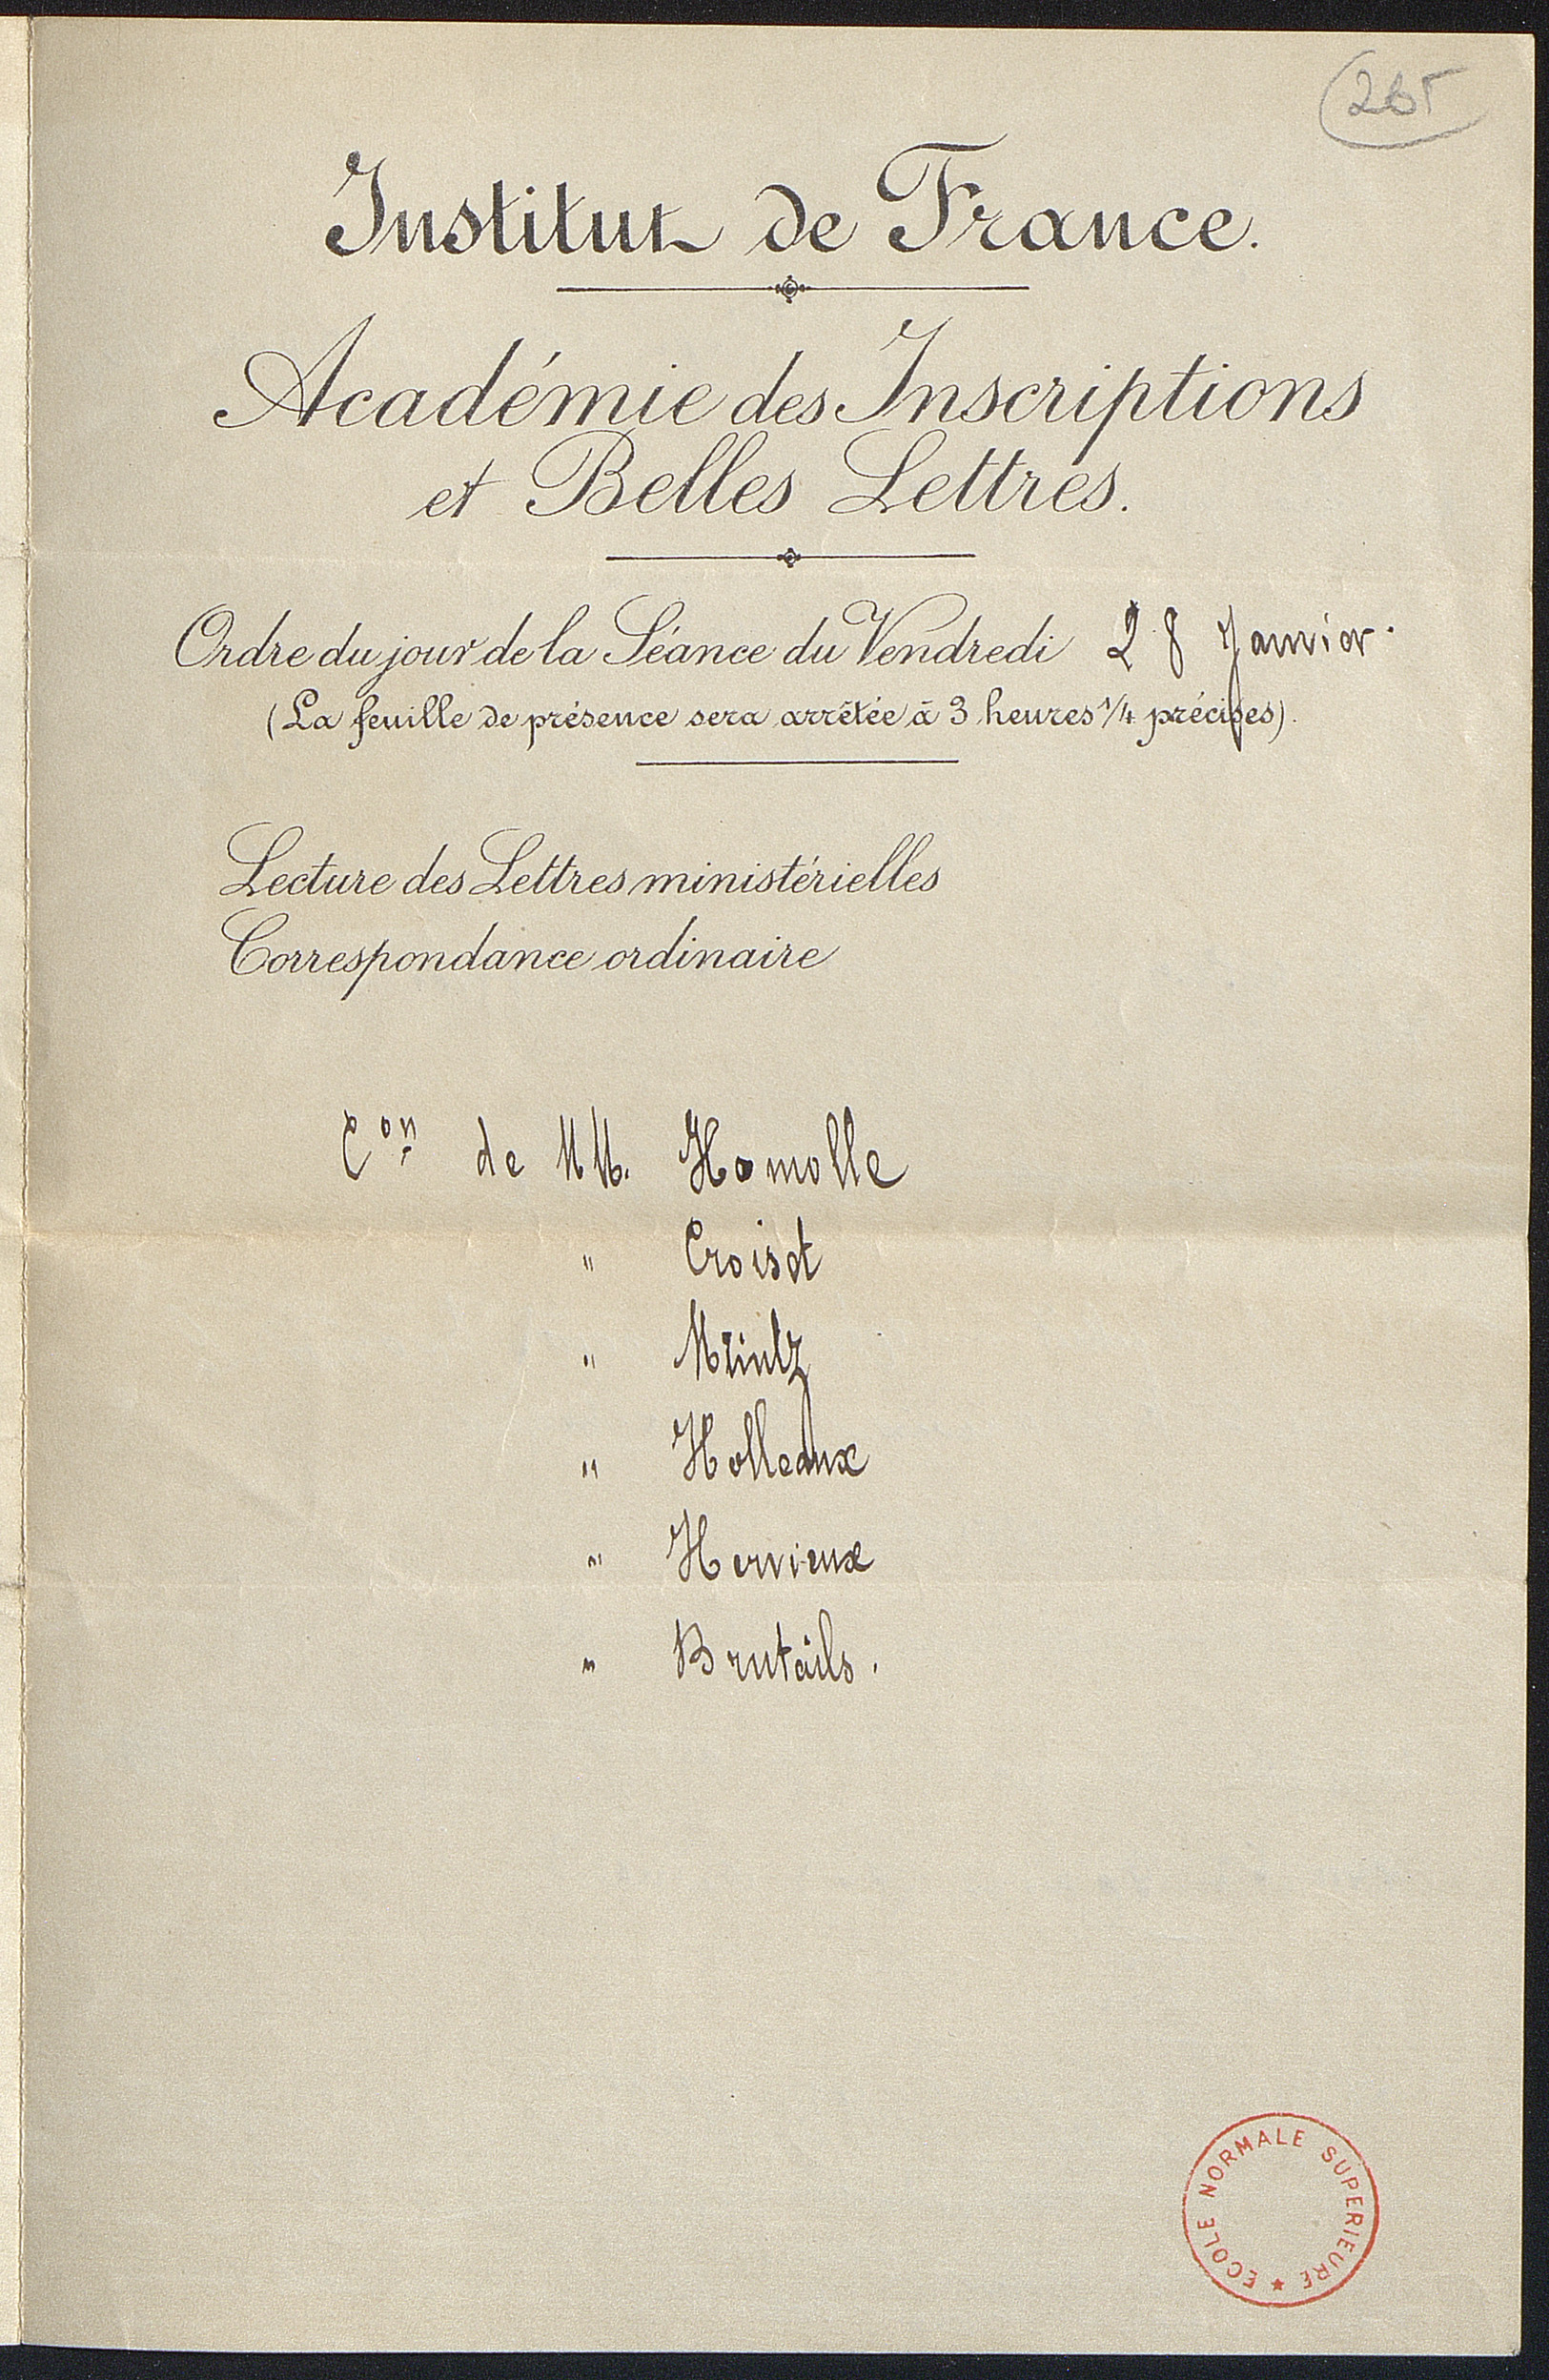 265
Institut de France.
Académie des Inscriptions
et Belles Lettres.
Ordre du jour de la Séance du Vendredi 28 Janvier.
(La feuille de présence sera arrêtée à 3 heures 1/4 précises).
Lecture des Lettres ministérielles
Correspondance ordinaire
Con de MM. Homolle
" Croiset
" Müntz
" Holleaux
" Hervieux
" Brutails.
ECOLE NORMALE SUPERIEURE